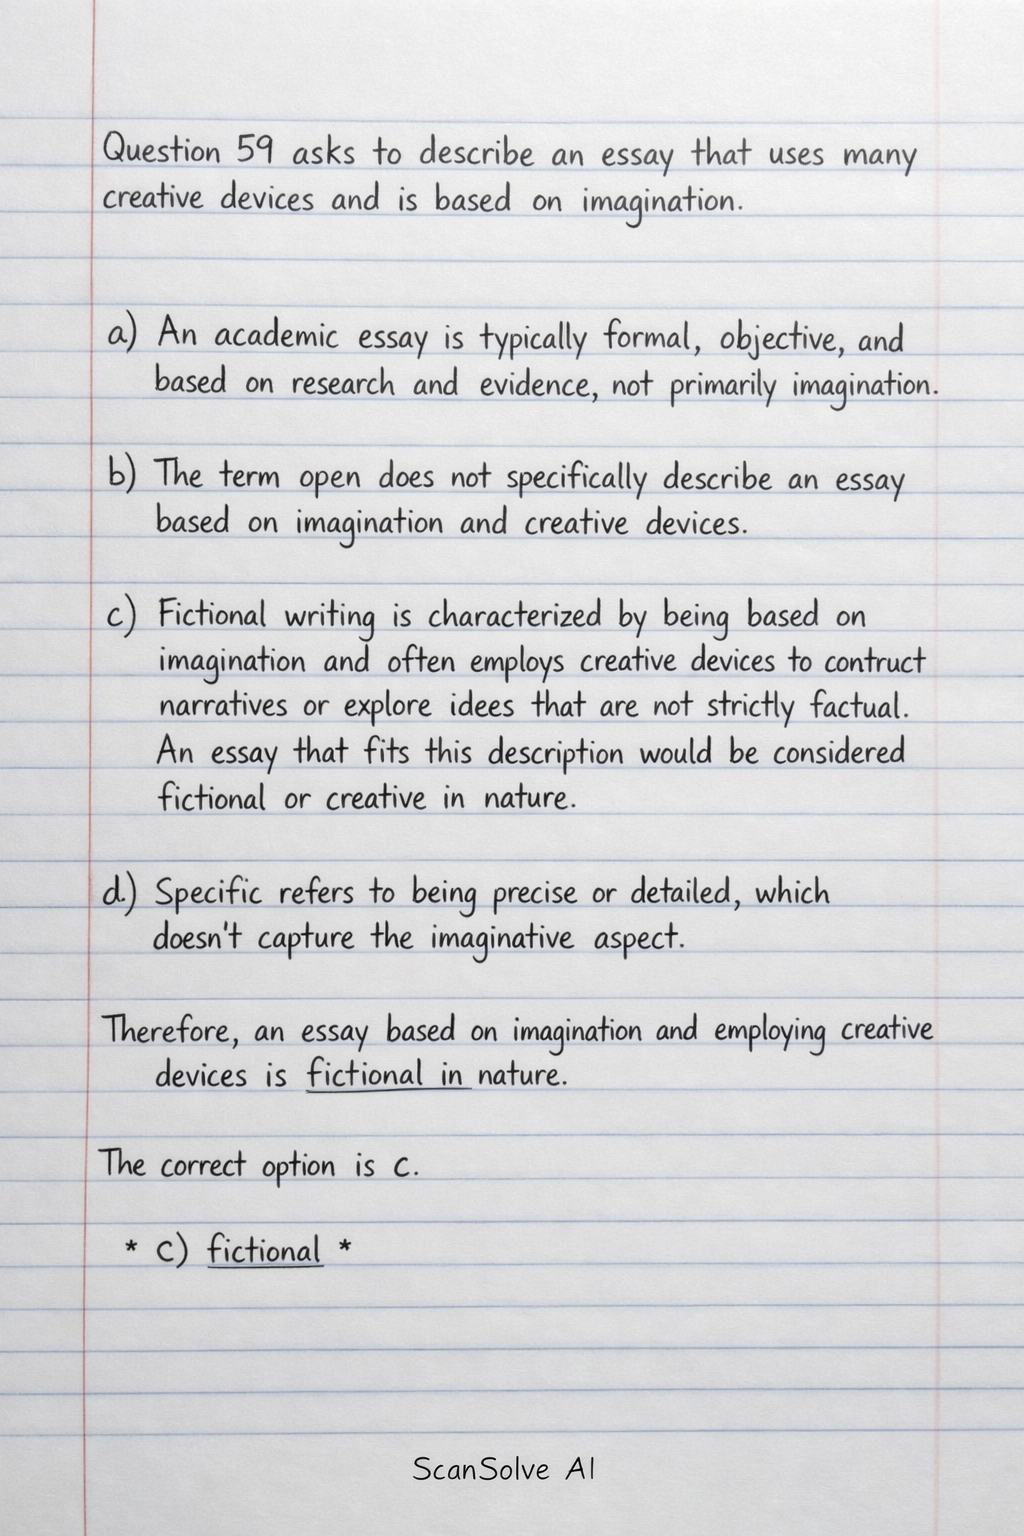 Question 59 asks to describe an essay that uses many
creative devices and is based on imagination.
a) An academic essay is typically formal, objective, and
based on research and evidence, not primarily imagination.
b) The term open does not specifically describe an essay
based on imagination and creative devices.
c) Fictional writing is characterized by being based on
imagination and often employs creative devices to contruct
narratives or explore idees that are not strictly factual.
An essay that fits this description would be considered
fictional or creative in nature.
d.) Specific refers to being precise or detailed, which
doesn't capture the imaginative aspect.
Therefore, an essay based on imagination and employing creative
devices is fictional in nature.
The correct option is c.
* c) fictional *
ScanSolve AI